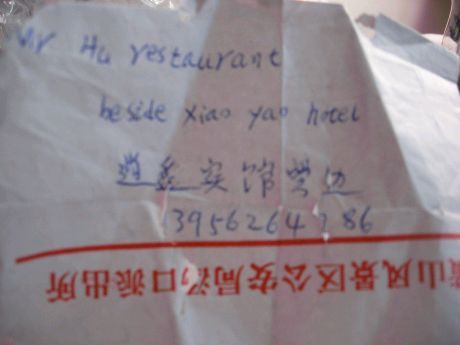 Mr Hu restaurant
beside xiao yao hotel
逍遥宾馆旁边
山风景区公安局汤口派出所